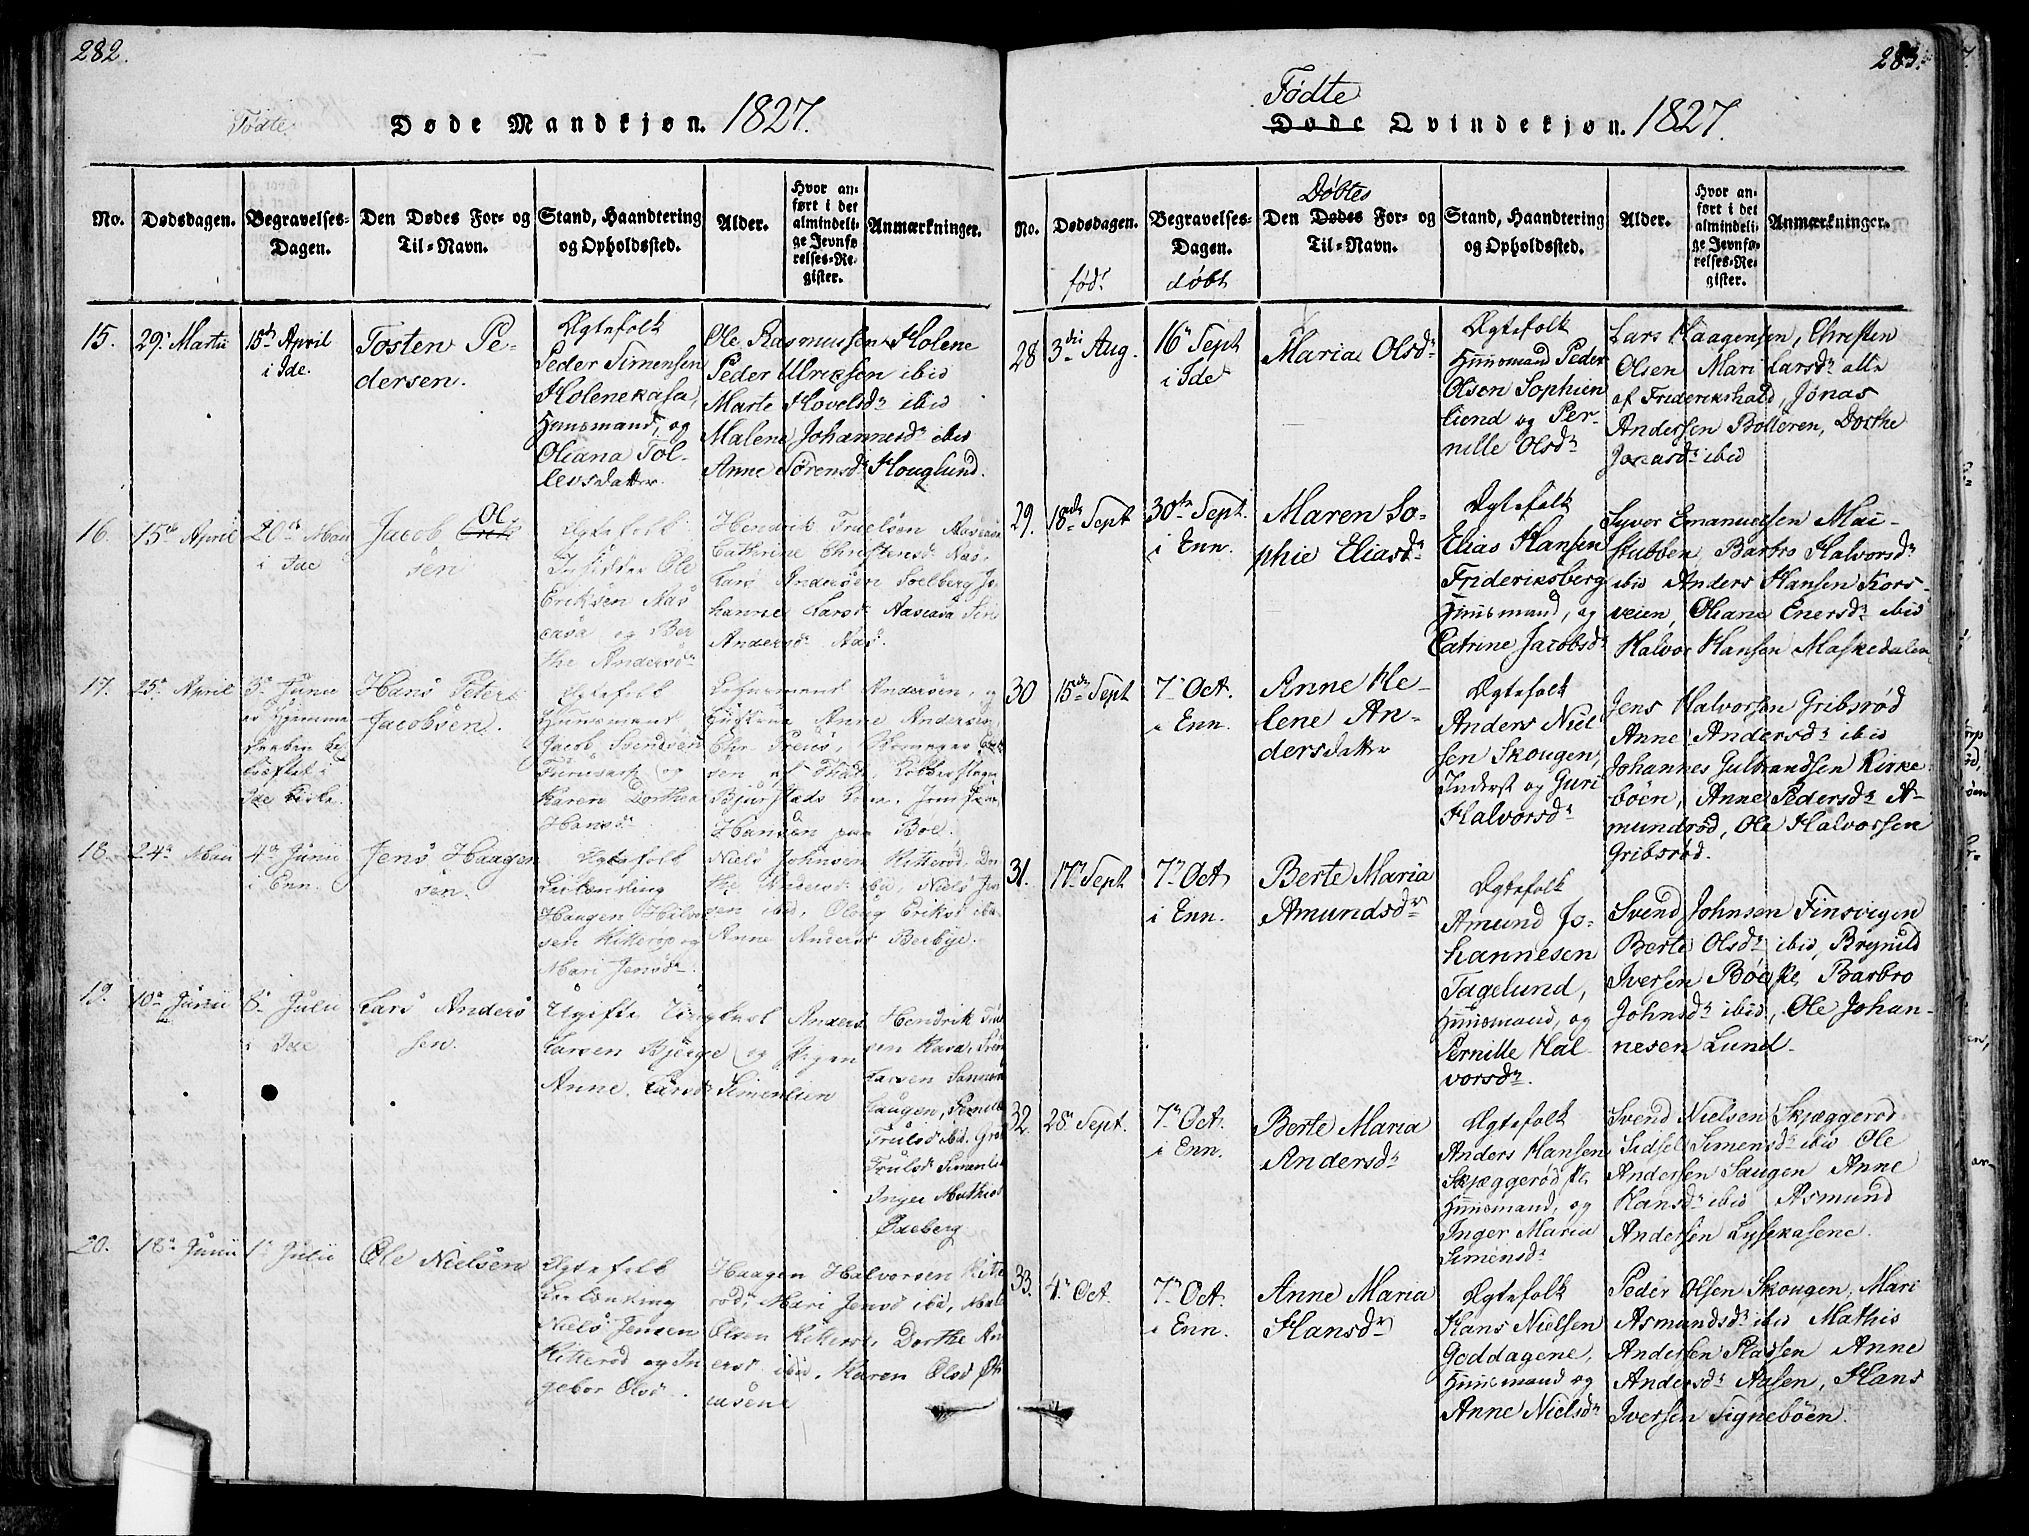 282.
Tødte.
Døde Mandkjøn. 1827.
No.
Dødsdagen.
Begravelses-
Dagen.
Den Dødes For- og
Til-Navn.
Stand, Haandtering
og Opholdssted.
Alder.
Hvor an-
ført i det
almindeli-
ge Jevnfø-
relses-Re-
gister.
Anmærkninger.
15.
29. Martii
15de April
i Ide.
Tosten Pe-
dersen.
Ægtefolk
Peder Simensen
Holenekasa,
Huusmand, og
Oliana Tol-
levsdatter.
Ole Rasmussen Holene
Peder Ulriksen ibid
Marte Hovelsdr ibid
Malene Johannesdr ibid
Anne Sørensdr Houglund.
16.
15de April
20de Mai
i Ide
Jacob Ol
sen
Ægtefolk
Indsidder Ole
Eriksen Aas
casa og Ber
the Andersdr
Hendrik Truelsen Aascasa
Cathrine Christensd Aas,
Lars Andersen Soelberg Jo
hanne Larsd Aascasa
Andersd Aas.
17.
25de April
3de Junii
er Hjemme
daaben be
kræftet i
Ide Kirke.
Hans Peter
Jacobsen.
Ægtefolk
Huusmand
Jacob Svendsen
og
Karen Dorthea
Hansdr
Andersen, og
Anne Andersd,
sen af Frhald,
Hansen paa Bøe.
18.
24de Maii
4de Junii
i Enn.
Jens Haagen
sen.
Ægtefolk
Leilænding
Haagen Halvor
sen Kitterød og
Mari Jensdr
Niels Johnsen Kitterød, Dor
the Andersd ibid, Niels Jen
sen ibid, Oloug Eriksd ibid
Anne Andersd Berbye.
19.
10de Junii
8de Julii
i Ide
Lars Anders
sen.
Ugifte Ungkarl Anders
Larsen Bjerge og Pigen
Anne Larsdr Simenlien
Hendrik
sen Kasa,
Larsen
haugen, Pernille
Trulsd ibid. Gro
Trulsd Simenli
Inger Mathisd
Ødeberg.
20.
18de Junii
1de Julii
Ole Nielsen
Ægtefolk
Leilænding
Niels Jensen
Kitterød og In
gebor Olsd.
Haagen Halvorsen Kitte
rød, Mari Jensd ibid,
Olsen Kitterød, Dorthe An
ersd ibid, Karen Olsd
casene
283.
Tødte
Døde Qvindekjøn. 1827.
No.
Dødsdagen.
født
Begravelses-
Dagen.
døbt
Døbtes
Den Dødes For- og
Til-Navn.
Stand, Haandtering
og Opholdssted.
Alder.
Hvor an-
ført i det
almindeli-
ge Jevnfø-
relses-Re-
gister.
Anmærkninger.
28
3die Aug.
16de Sept
i Ide
Maria Olsdr
Ægtefolk
Huusmand Peder
Olsen Sophien
liend og Per-
nille Olsdr
Lars Haagensen, Christen
Olsen Mari Larsdr alle
af Friderikshald, Jonas
Andersen Bolleren, Dorthe
Jonasdr ibid
29.
18de Sept
30te Sept.
i Enn.
Maren So-
phie Eliasdr
Ægtefolk
Elias Hansen
Frideriksberg
Huusmand, og
Catrine Jacobsdr
Syver Emanuelsen Mai-
stubben Barbro Halvorsdr
ibid Anders Hansen Kors-
veien, Oliane Enersdr ibid
Halvor Hansen Maskedalen
30
15de Sept
7de Oct.
i Enn.
Anne He-
lene An-
dersdatter
Ægtefolk
Anders Niel-
sen Skougen,
Inderst og Guri
Halvorsdr
Jens Halvorsen Gribsrød
Anne Andersdr ibid
Johannes Gulbrandsen Kirke
bøen, Anne Pedersdr A-
mundrød, Ole Halvorsen
Gribsrød.
31.
17de Sept
7de Oct
i Enn.
Berte Maria
Amundsdr
Ægtefolk
Amund Jo-
hannesen
Tagelund,
Huusmand, og
Pernille Hal-
vorsdr.
Svend Johnsen Finsvigen
Berte Olsdr ibid, Brynild
Iversen Bøe pl. Barbro
Johnsdr ibid, Ole Johan-
nesen Lund.
32.
28de Sept.
7de Oct.
i Enn.
Berte Maria
Andersdr
Ægtefolk
Anders Hansen
Skjæggerød pl.
Huusmand, og
Inger Maria
Simensdr
Svend Nielsen Skjæggerød
Sidsel Simensdr ibid Ole
Andersen Saugen Anne
Hansdr ibid Asmund
Andersen Lyssekasene.
33.
4de Oct.
7de Oct.
i Enn.
Anne Maria
Hansdr
Ægtefolk
Hans Nielsen
Goddagene,
Huusmand og
Anne Nielsdr
Peder Olsen Skougen, Mari
Asmundsdr ibid Mathis
Andersen Pladsen Anne
Andersdr Aasen, Hans
Iversen Signebøen.